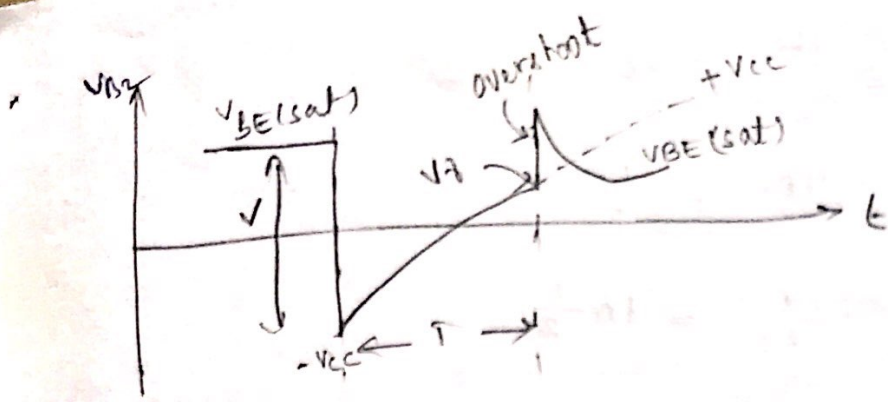 VB2
VBE(sat)
overshoot
+Vcc
Vγ
VBE(sat)
V
t
T
-Vcc